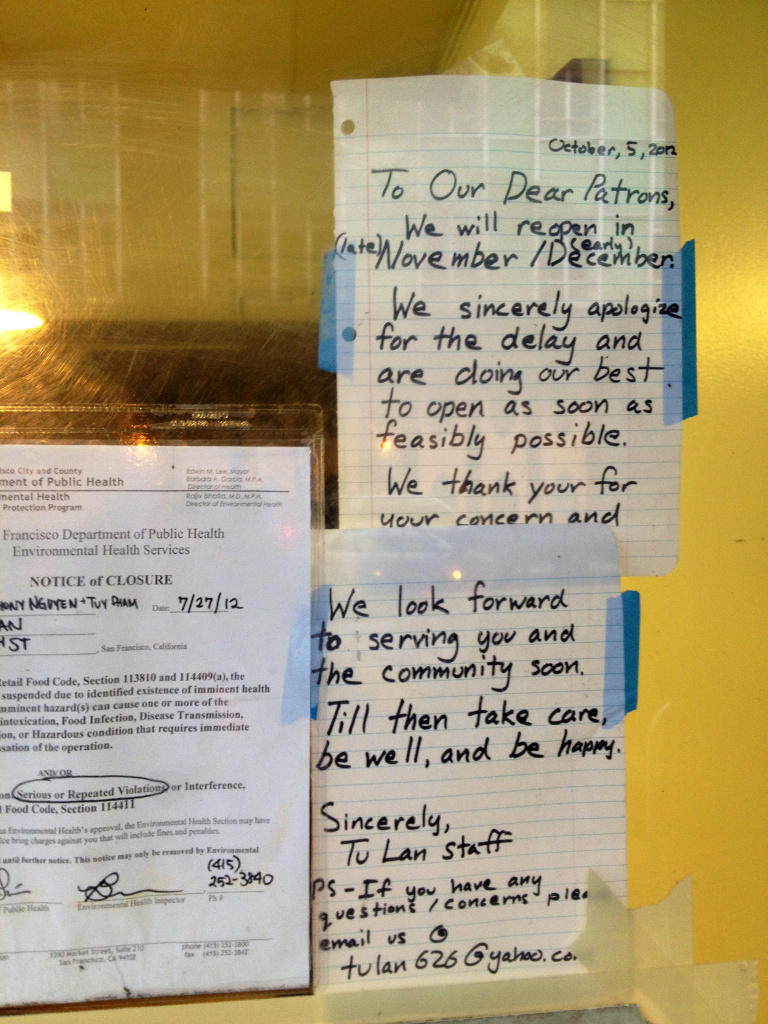 October, 5, 2012
To Our Dear Patrons,
We will reopen in
(late) November / (early) December.
We sincerely apologize
for the delay and
are doing our best
to open as soon as
feasibly possible.
We thank your for
your concern and
We look forward
to serving you and
the community soon.
Till then take care,
be well, and be happy.
Sincerely,
Tu Lan staff
PS - If you have any
questions / concerns plea
email us @
tulan626@yahoo.co.
isco City and County
ment of Public Health
mental Health
Protection Program
Edwin M. Lee, Mayor
Barbara A. Garcia, M.P.A.
Director of Health
Rajiv Bhatia, M.D., M.P.H.
Director of Environmental Health
Francisco Department of Public Health
Environmental Health Services
NOTICE of CLOSURE
HONY NGUYEN + TUY PHAM Date: 7/27/12
AN
H ST , San Francisco, California
etail Food Code, Section 113810 and 114409(a), the
suspended due to identified existence of imminent health
mminent hazard(s) can cause one or more of the
intoxication, Food Infection, Disease Transmission,
on, or Hazardous condition that requires immediate
ssation of the operation.
AND/OR
on Serious or Repeated Violations or Interference,
l Food Code, Section 114411
ut Environmental Health's approval, the Environmental Health Section may have
ice bring charges against you that will include fines and penalties.
until further notice. This notice may only be removed by Environmental
(415)
252-3840
Public Health Environmental Health Inspector Ph #
1390 Market Street, Suite 210
San Francisco, CA 94102
phone (415) 252-3800
fax (415) 252-3842